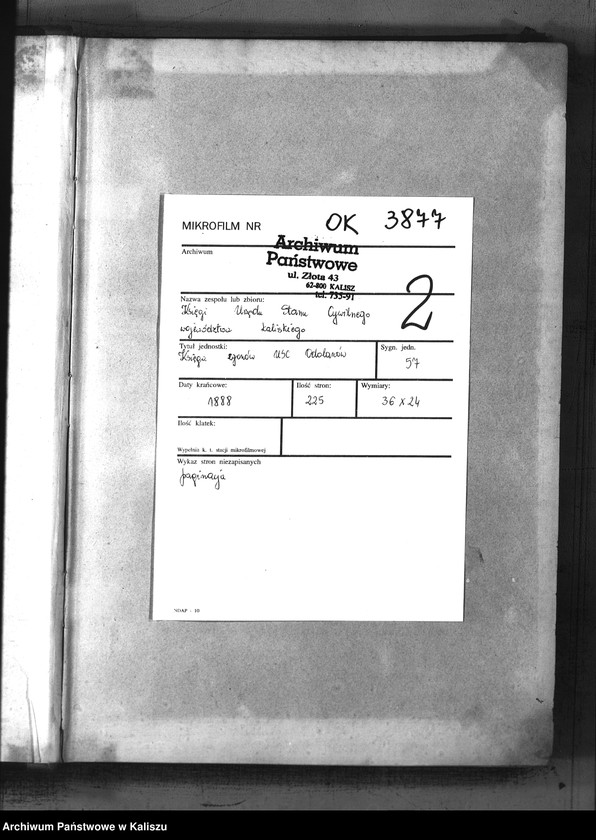 MIKROFILM NR OK 3877
Archiwum
Archiwum
Państwowe
ul. Złota 43
62-800 KALISZ
tel. 735-91
2
Nazwa zespołu lub zbioru:
Księgi Urzędu Stanu Cywilnego
województwa kaliskiego
Tytuł jednostki:
Księga zgonów USC Odolanów
Sygn. jedn.
57
Daty krańcowe:
1888
Ilość stron:
225
Wymiary:
36 x 24
Ilość klatek:
Wypełnia k. t. stacji mikrofilmowej
Wykaz stron niezapisanych
paginacja
NDAP - 10
Archiwum Państwowe w Kaliszu